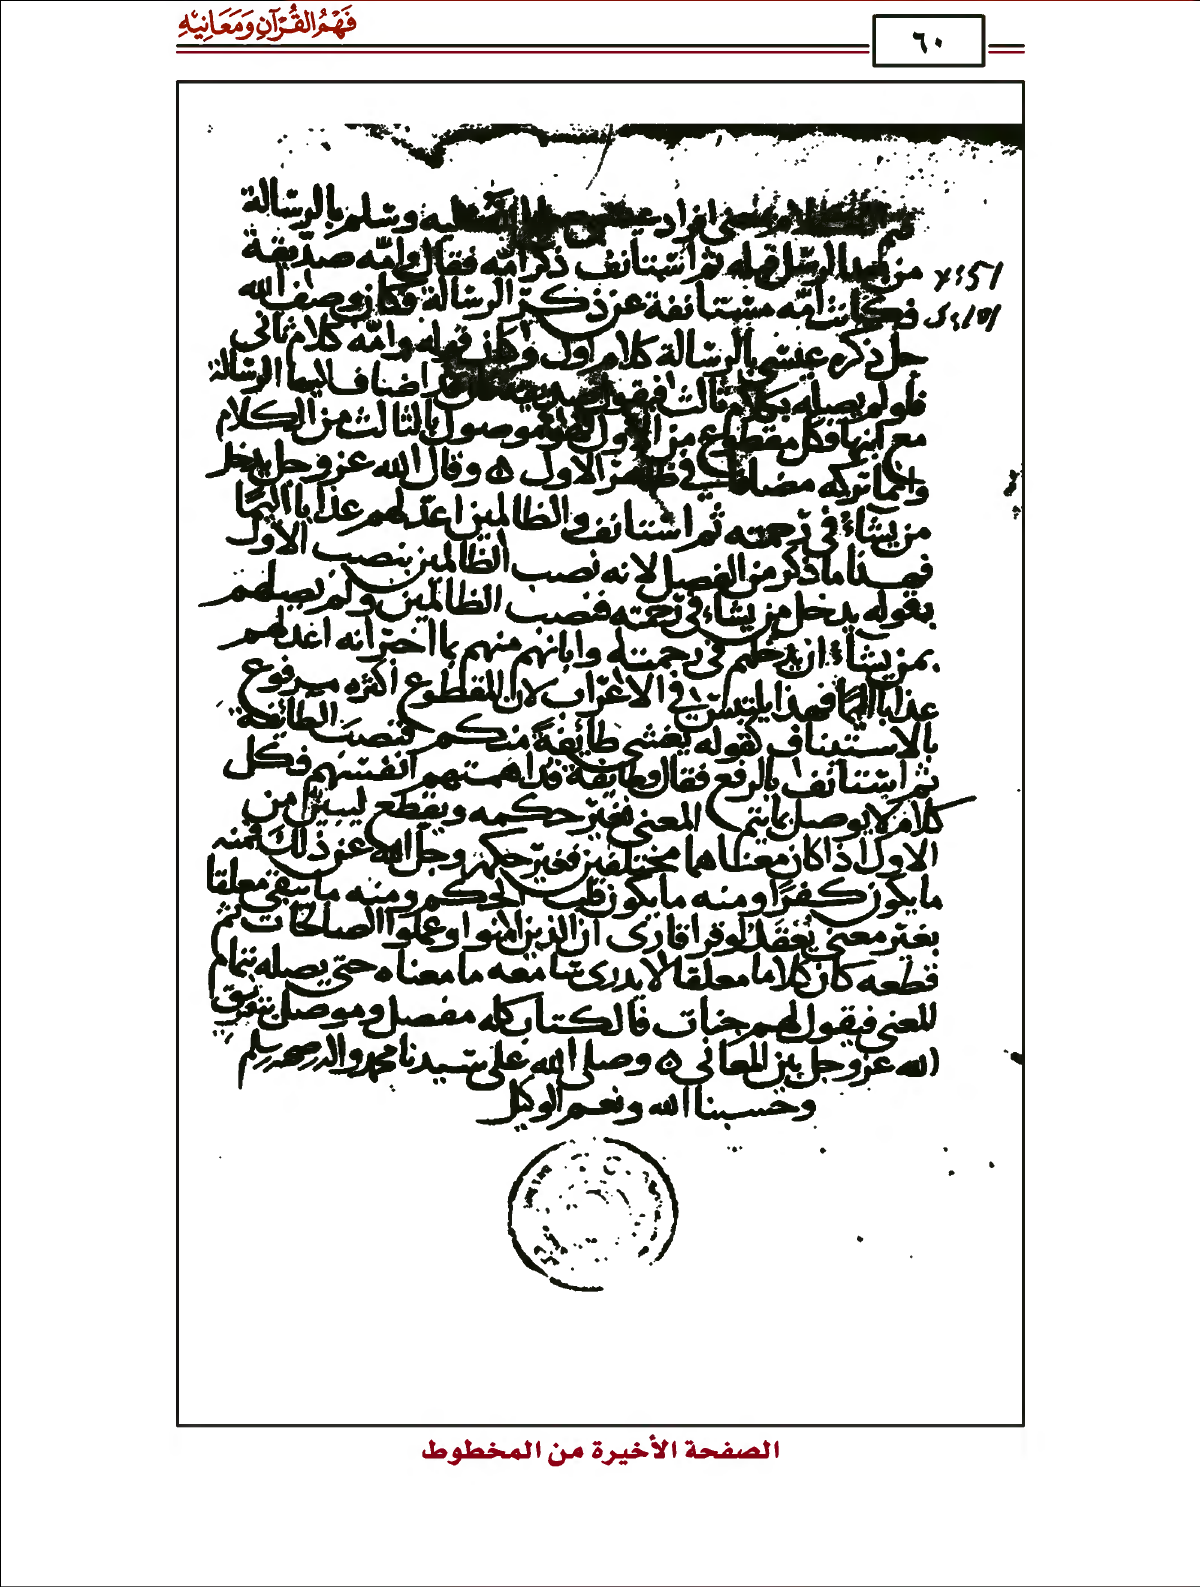 فَهْمُ القُرْآنِ وَمَعَانِيْهِ
٦٠
عيسى وسلم بالرسالة
من الرسل قبله ثم استانف ذكر امه فقال وامه صديقة
فكانت امه مستانفة عن ذكر الرسالة فكان وصف الله
جل ذكره عيسى بالرسالة كلام اول وكان قوله وامه كلام ثاني
فلو لم يصله بكلام ثالث فيقول صديقة اضاف اليها الرسالة
مع ابنها فكل مقطوع من الاول فهو موصول بالثالث من الكلام
وانما تركه مضافا في ظاهر الاول ٥ وقال الله عز وجل يدخل
من يشاء في رحمته ثم استانف والظالمين اعد لهم عذابا اليما
فهذا ما ذكر من الفصل لانه نصب الظالمين بنصب الاول
بقوله يدخل من يشاء في رحمته فنصب الظالمين ولم يصلهم
بمن يشاء ان يدخلهم في رحمته وابانهم منهم بما اخبر انه اعد لهم
عذابا اليما فهذا يلتبس في الاعراب لان المقطوع اكثره مرفوع
بالاستيناف كقوله يغشى طائفة منكم فنصب الطائفة
ثم استانف بالرفع فقال وطائفة قد اهمتهم انفسهم فكل
كلام لا يوصل بما يتم المعنى فغير حكمه ويقطع ليبين من
الاول اذا كان معناهما مختلفين فغير حكم الله عز وجل عن ذلك فمنه
ما يكون كفرا ومنه ما يكون قلب الحكم ومنه ما يبقى معلقا
بغير معنى يعقد لو قرا قارى ان الذين امنوا وعملوا الصالحات ثم
قطعه كان كلاما معلقا لا يدرى سامعه ما معناه حتى يصله بتمام
المعنى فيقول لهم جنات فالكتاب كله مفصل وموصل بتفريق
الله عز وجل بين المعاني ٥ وصلى الله على سيدنا محمد واله وصحبه وسلم
وحسبنا الله ونعم الوكيل
الصفحة الأخيرة من المخطوط